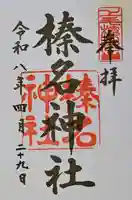 奉拝
榛名神社
令和八年四月二十九日
榛名
神社